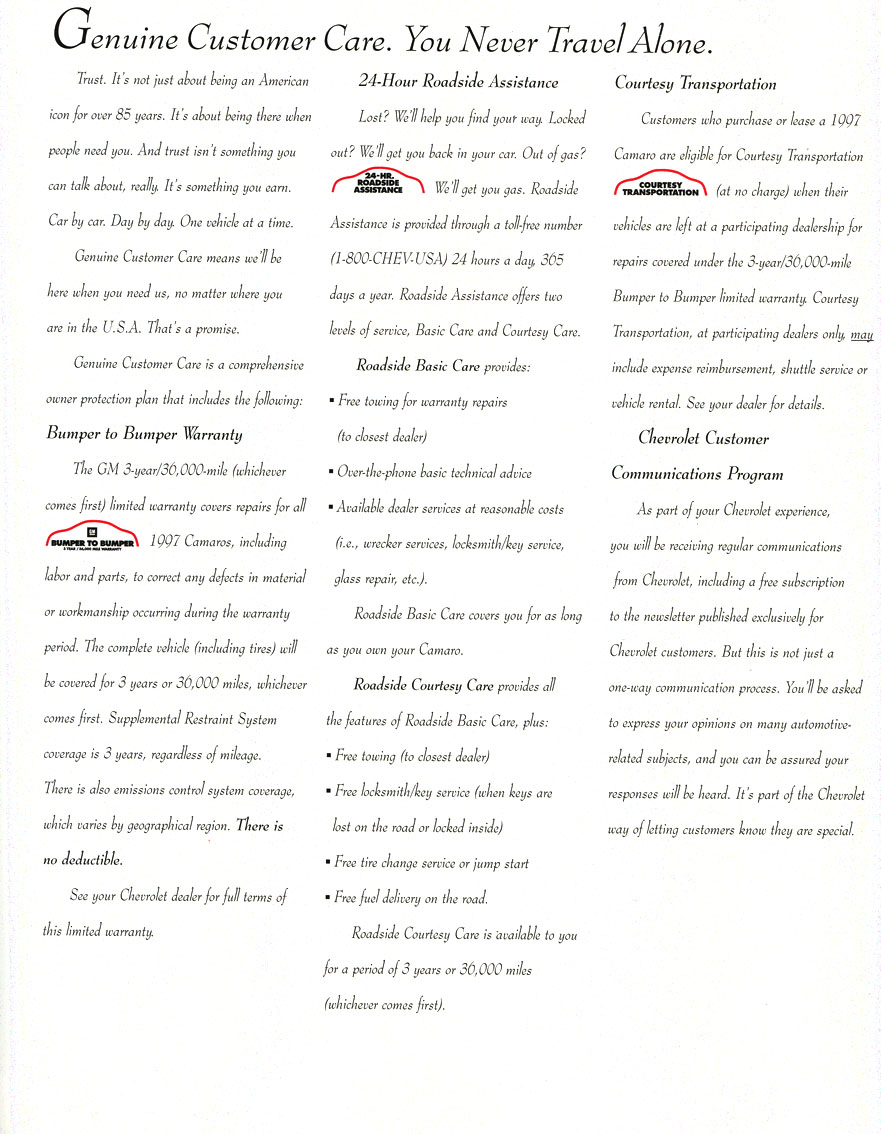 Genuine Customer Care. You Never Travel Alone.
Trust. It's not just about being an American
icon for over 85 years. It's about being there when
people need you. And trust isn't something you
can talk about, really. It's something you earn.
Car by car. Day by day. One vehicle at a time.
Genuine Customer Care means we'll be
here when you need us, no matter where you
are in the U.S.A. That's a promise.
Genuine Customer Care is a comprehensive
owner protection plan that includes the following:
Bumper to Bumper Warranty
The GM 3-year/36,000-mile (whichever
comes first) limited warranty covers repairs for all
GM
BUMPER TO BUMPER
3 YEAR / 36,000 MILE WARRANTY
1997 Camaros, including
labor and parts, to correct any defects in material
or workmanship occurring during the warranty
period. The complete vehicle (including tires) will
be covered for 3 years or 36,000 miles, whichever
comes first. Supplemental Restraint System
coverage is 3 years, regardless of mileage.
There is also emissions control system coverage,
which varies by geographical region. There is
no deductible.
See your Chevrolet dealer for full terms of
this limited warranty.
24-Hour Roadside Assistance
Lost? We'll help you find your way. Locked
out? We'll get you back in your car. Out of gas?
24-HR.
ROADSIDE
ASSISTANCE
We'll get you gas. Roadside
Assistance is provided through a toll-free number
(1-800-CHEV-USA) 24 hours a day, 365
days a year. Roadside Assistance offers two
levels of service, Basic Care and Courtesy Care.
Roadside Basic Care provides:
▪ Free towing for warranty repairs
(to closest dealer)
▪ Over-the-phone basic technical advice
▪ Available dealer services at reasonable costs
(i.e., wrecker services, locksmith/key service,
glass repair, etc.).
Roadside Basic Care covers you for as long
as you own your Camaro.
Roadside Courtesy Care provides all
the features of Roadside Basic Care, plus:
▪ Free towing (to closest dealer)
▪ Free locksmith/key service (when keys are
lost on the road or locked inside)
▪ Free tire change service or jump start
▪ Free fuel delivery on the road.
Roadside Courtesy Care is available to you
for a period of 3 years or 36,000 miles
(whichever comes first).
Courtesy Transportation
Customers who purchase or lease a 1997
Camaro are eligible for Courtesy Transportation
COURTESY
TRANSPORTATION
(at no charge) when their
vehicles are left at a participating dealership for
repairs covered under the 3-year/36,000-mile
Bumper to Bumper limited warranty. Courtesy
Transportation, at participating dealers only, may
include expense reimbursement, shuttle service or
vehicle rental. See your dealer for details.
Chevrolet Customer
Communications Program
As part of your Chevrolet experience,
you will be receiving regular communications
from Chevrolet, including a free subscription
to the newsletter published exclusively for
Chevrolet customers. But this is not just a
one-way communication process. You'll be asked
to express your opinions on many automotive-
related subjects, and you can be assured your
responses will be heard. It's part of the Chevrolet
way of letting customers know they are special.